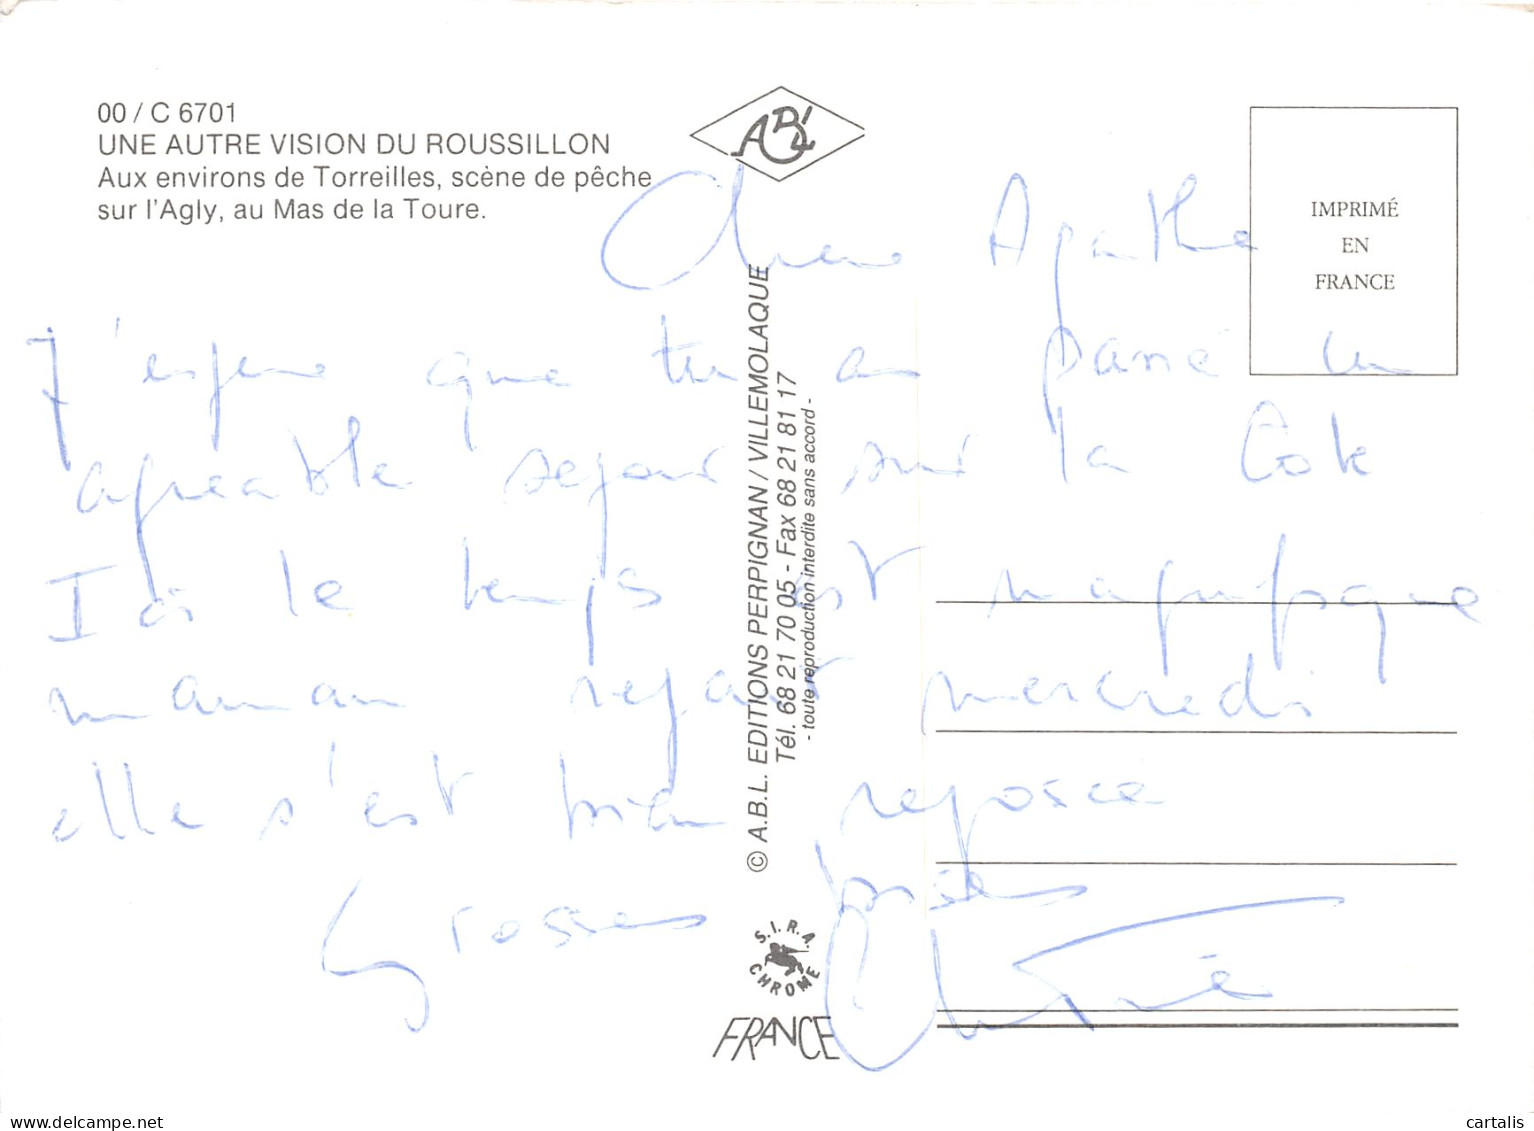 00 / C 6701
UNE AUTRE VISION DU ROUSSILLON
Aux environs de Torreilles, scène de pêche
sur l'Agly, au Mas de la Toure.
ABL
IMPRIMÉ
EN
FRANCE
Chere Agathe
J'espere que tu as passé un
agreable sejour sur la Cote
Ici le temps est magnifique
maman repart mercredi
elle s'est bien reposee
Grosses bises
© A.B.L. EDITIONS PERPIGNAN / VILLEMOLAQUE
Tél. 68 21 70 05 - Fax 68 21 81 17
- toute reproduction interdite sans accord -
S.I.R.A.
CHROME
FRANCE
delcampe.net
cartalis